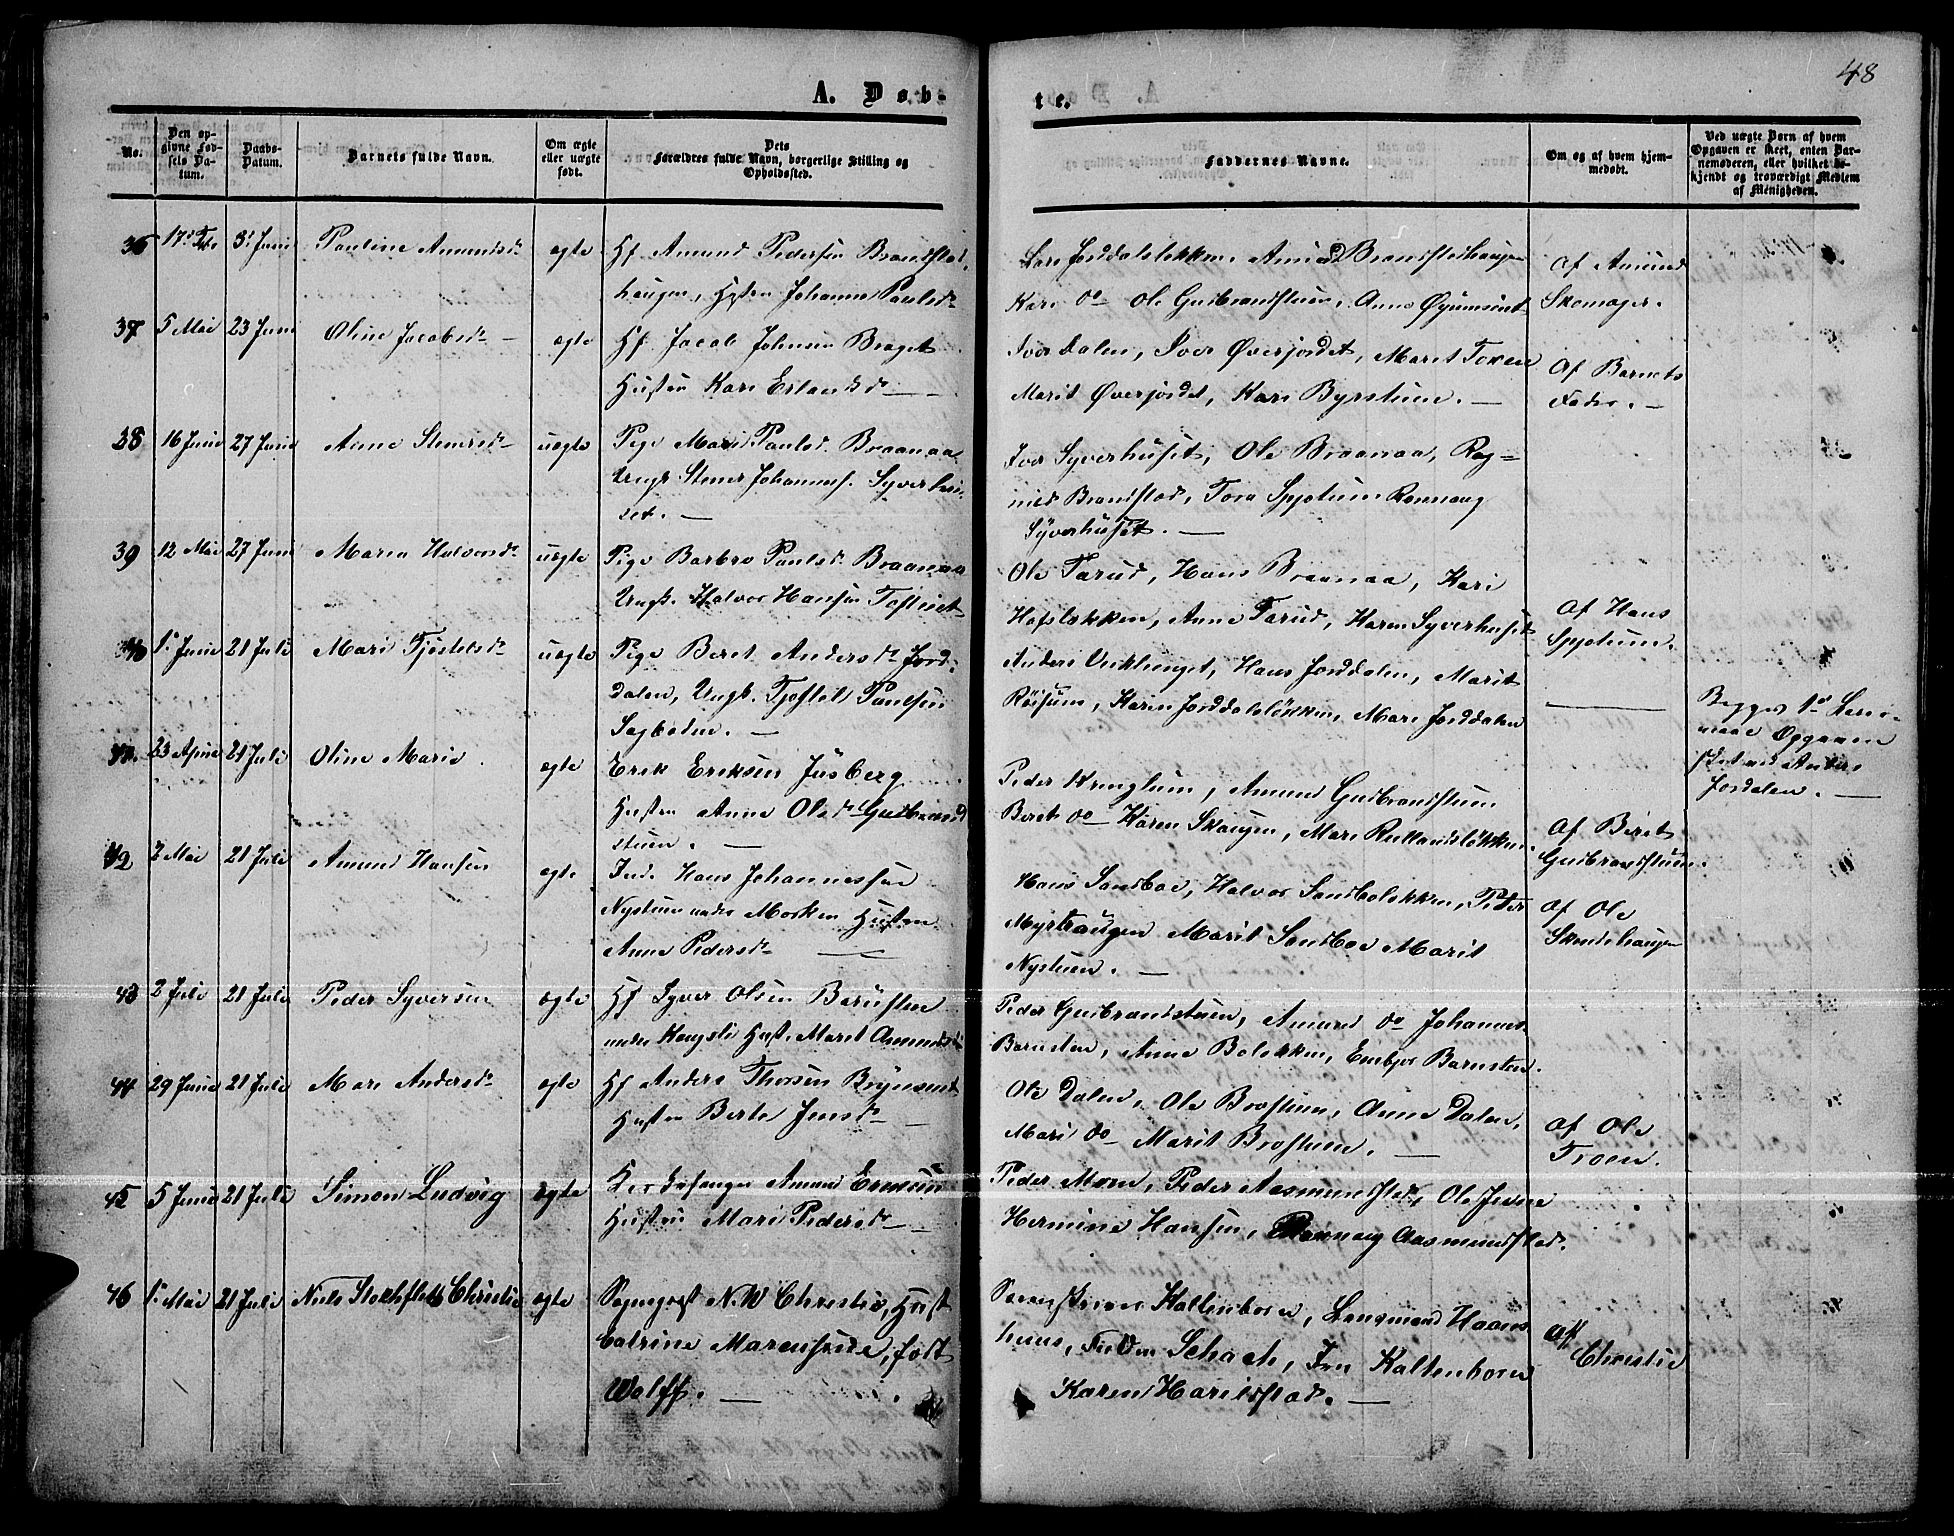 48
A. Døb-
te.
No.
Den op-
givne Fød-
sels Da-
tum.
Daabs-
Datum.
Barnets fulde Navn.
Om ægte
eller uægte
født.
Dets
Forældres fulde Navn, borgerlige Stilling og
Opholdssted.
Faddernes Navne.
Om og af hvem hjem-
medøbt.
Ved uægte Børn af hvem
Opgaven er skeet, enten Bar-
nemoderen, eller hvilket be-
kjendt og troværdigt Medlem
af Menigheden.
36 3' Juni Pauline Amundsd. ægte Hf Amund Pedersen Brandstad-
haugen, Hustru Johanne Paulsd.
Lars Jorddalsløkken, Amund Brandstadhaugen
Kari do Ole Gudbrandstuen, Anne
Af Amund
Skomager.
37 5 Mai 23 Juni Oline Jacobsd. ægte Hf Jacob Johnsen Braget
Hustru Kari Erlandsd.
Iver Dalen, Iver Øverjordet, Marit Toxen
Marit Øverjordet, Kari Byrstuen.
Af Barnets
Fader.
38 16 Juni 27 Juni Anne Stenersd. uægte Pige Mari Paulsd. Braanaa
Ungk. Stener Johannes. Syverhu-
set.
Iver Syverhuset, Ole Braanaa, Rag-
nild Brandstad, Tora Spjotum Rønnaug
Syverhuset.
39 12 Mai 27 Juni Maria Halvorsd. uægte Pige Barbro Paulsd. Braanaa
Ungk. Halvor Hansen Toftnet
Ole Tarud, Hans Braanaa, Kari
Hofsløkken, Anne Tarud, Karen Syverhuset
Af Hans
Spjotum.
40 1' Juni 21 Juli Mari Tjøstelsd. uægte Pige Beret Andersd. Jord-
dalen, Ungk. Tjøstel Paulsen
Anders Veklenget, Hans Jorddalen, Marit
Røisum, Karen Jorddalsløkken, Mari Jorddalen
Begges 1'
Opgaven
Anders
Jordalen.
41. 23 April 21 Juli Oline Marie ægte Erik Eriksen Jusberg
Hustru Anne Olsd. Gudbrand
stuen.
Peder Kringlum, Amund Gudbrandstuen
Beret do Karen Skaugen, Mari Ruklandsløkken.
Af Beret
Gudbrandstuen.
42 2 Mai 21 Juli Amund Hansen ægte Ind. Hans Johannessen
Nystuen under Morken Hustru
Anne Pedersd.
Hans Sandboe, Halvor Sandboløkken, Peder
Myrhaugen Marit Sandboe Marit
Nystuen.
Af Ole
Skondehaugen
43 2 Juli 21 Juli Peder Syversen ægte Hf Syver Olsen Barusten
under Kongsli Hust. Marit Amundsd.
Peder Gudbrandstuen, Amund do Johannes
Barusten, Anne Boløkken, Embjør Barusten.
44 29 Juni 21 Juli Mari Andersd. ægte Hf Anders Thorsen
Hustru Berte Jensd.
Ole Dalen, Ole Brostuen, Anne Dalen,
Mari do Marit Brostuen.
Af Ole
Troen.
45 5 Juni 21 Juli Simon Ludvig ægte Amund Ericksen
Hustru Mari Pedersd.
Peder Moen, Peder Aasmundstad, Ole Jevne
Hermine Hansen, Rønnaug Aasmundstad.
46 1' Mai 21 Juli Niels Stockfleth Christie ægte Sognepræst N. W Christie, Hust
Catrine Marensine, født
Wolff.
Sorenskriver Kaltenborn, Lensmand Haans
huus, Schach, Fru Kaltenborn
Karen Harildstad.
Af
Christie